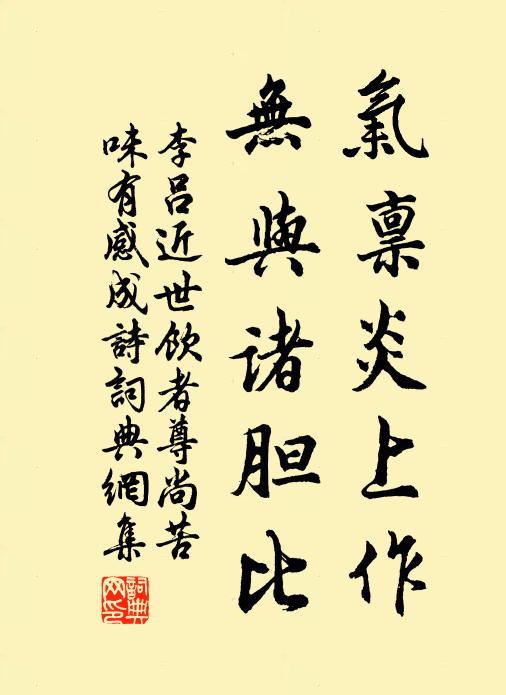 氣禀炎上作
無與诸胆比
李吕近世飲者尊尚苦
味有感成詩詞典網集
詞典网印